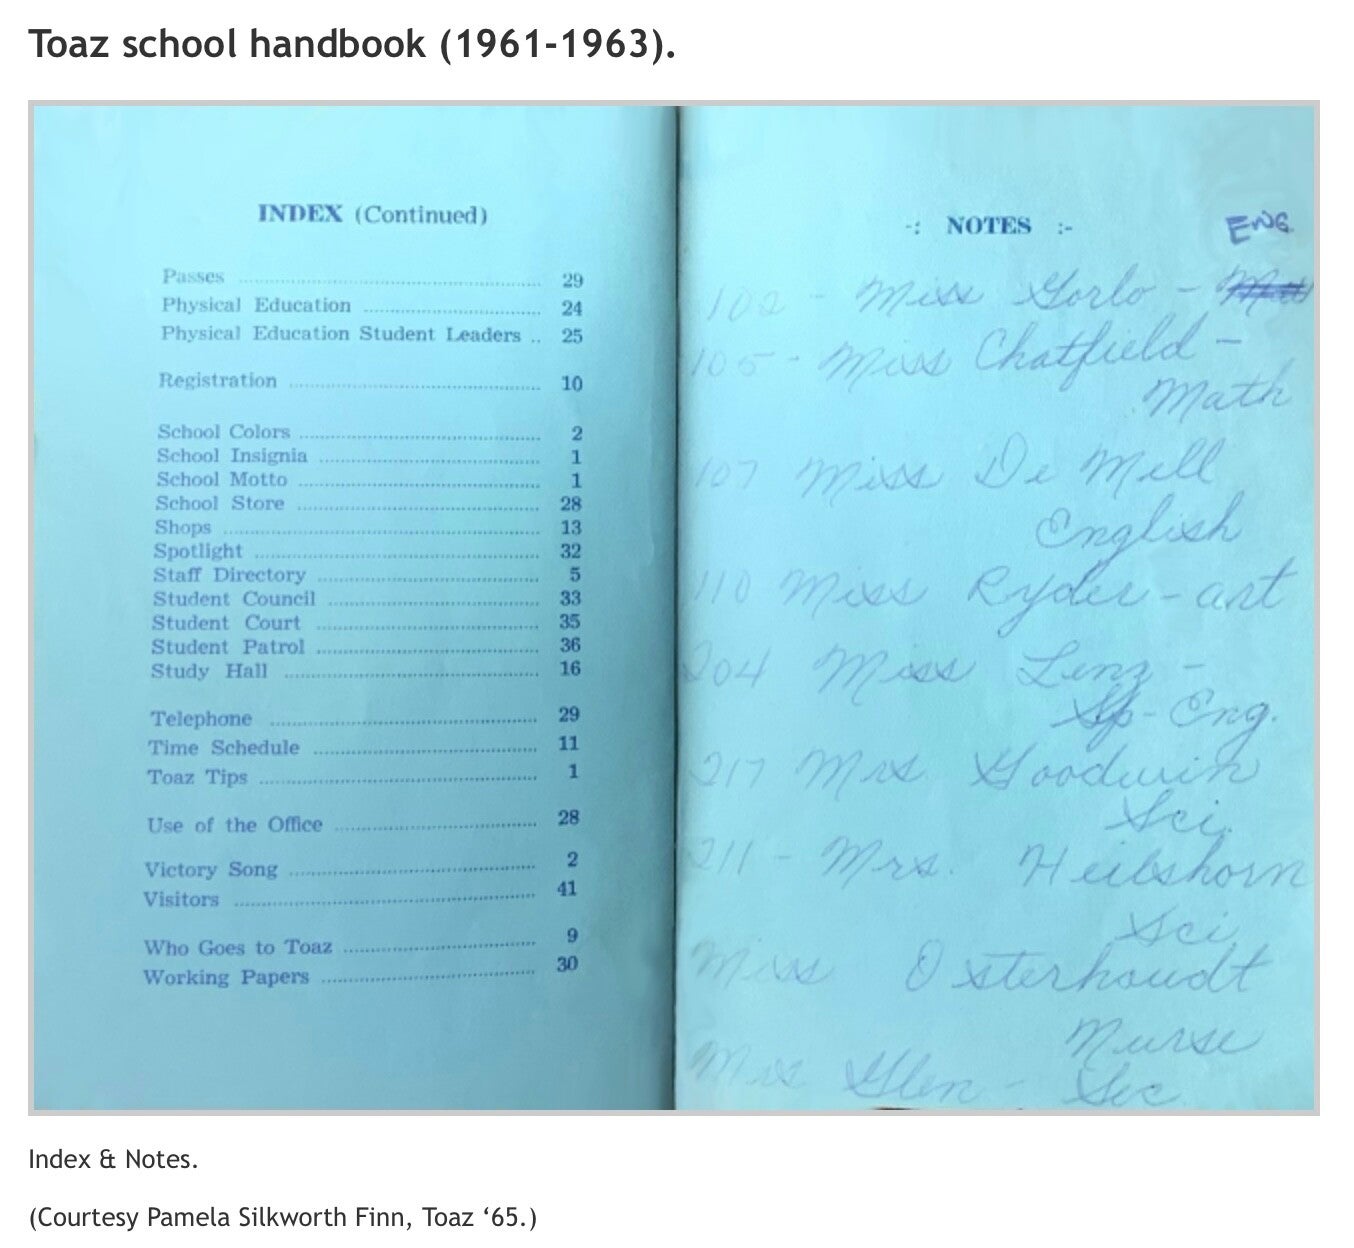 Toaz school handbook (1961-1963).
INDEX (Continued)
Passes 29
Physical Education 24
Physical Education Student Leaders .. 25
Registration 10
School Colors 2
School Insignia 1
School Motto 1
School Store 28
Shops 13
Spotlight 32
Staff Directory 5
Student Council 33
Student Court 35
Student Patrol 36
Study Hall 16
Telephone 29
Time Schedule 11
Toaz Tips 1
Use of the Office 28
Victory Song 2
Visitors 41
Who Goes to Toaz 9
Working Papers 30
-: NOTES :-
ENG.
102 - Miss Gorlo -
105 - Miss Chatfield -
Math
107 Miss De Mell
English
110 Miss Ryder - art
204 Miss Lenz -
Sp - Eng.
217 Mrs Goodwin
Sci.
211 - Mrs. Heilshorn
Sci
Miss Osterhoudt
Nurse
Glen - Sec
Index & Notes.
(Courtesy Pamela Silkworth Finn, Toaz ‘65.)